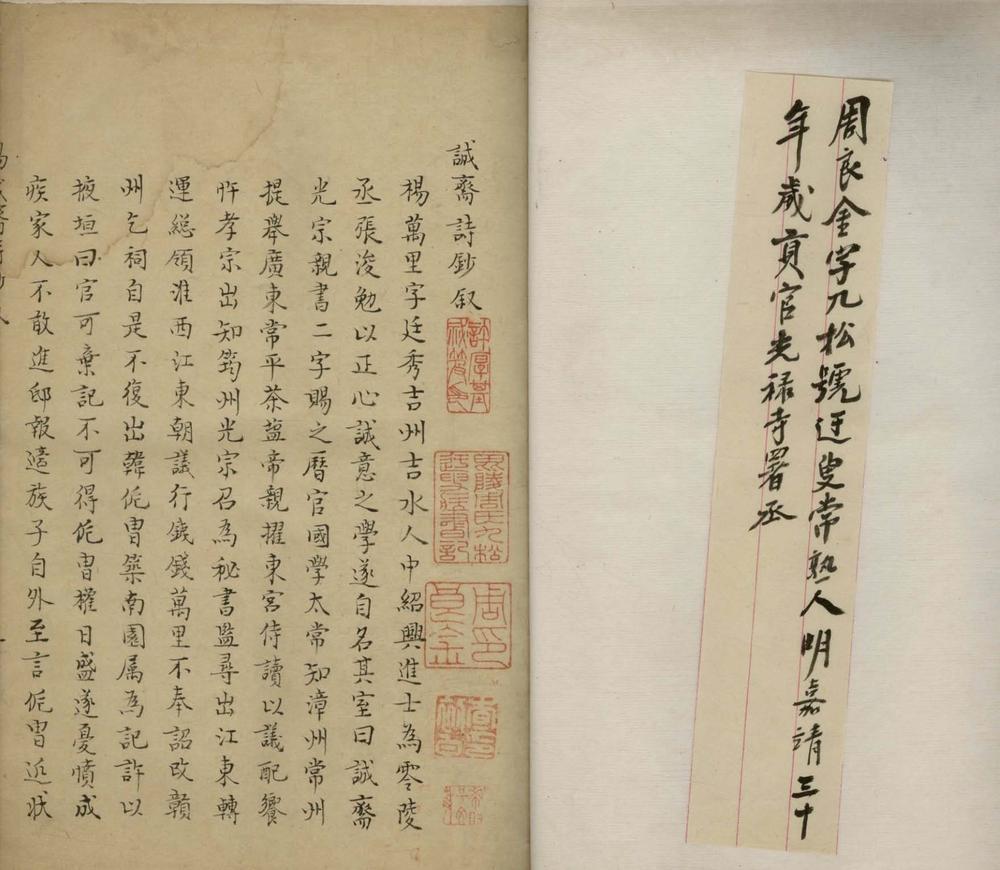 周良金字九松號迂叟常熟人明嘉靖三十
年歲貢官光祿寺署丞
誠齋詩鈔叙
楊萬里字廷秀吉州吉水人中紹興進士為零陵
丞張浚勉以正心誠意之學遂自名其室曰誠齋
光宗親書二字賜之曆官國學太常知漳州常州
提舉廣東常平茶盐帝親擢東宮侍讀以議配饗
忤孝宗出知筠州光宗召為秘書监尋出江東轉
運総領淮西江東朝議行鐵錢萬里不奉詔改贛
州乞祠自是不復出韓侂冑築南園属為記許以
掖垣曰官可棄記不可得侂冑權日盛遂憂憤成
疾家人不敢進邸報適族子自外至言侂冑近狀
周印良金